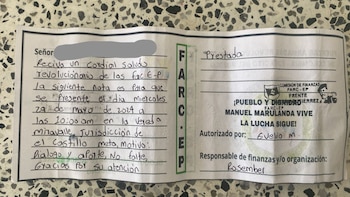 Señor
Reciva un Cordial Saludo
revolucionario de las FarC-E-P
La siguiente nota es para que
se Presente el dia miercoles
de mayo de 2024 A
las 10:00am en la Vereda
Miravalle, Jurisdiccion de
el Castillo meta, motivo:
Dialogo y aporte, No falte,
Gracias por su atención
FARC-EP
Prestada
COMISION DE FINANZAS
FARC - EP
FRENTE
¡PUEBLO Y DIGNIDAD!
FARC-EP
MANUEL MARULANDA VIVE
LA LUCHA SIGUE!
Autorizado por:
Responsable de finanzas y/o organización:
Rosember